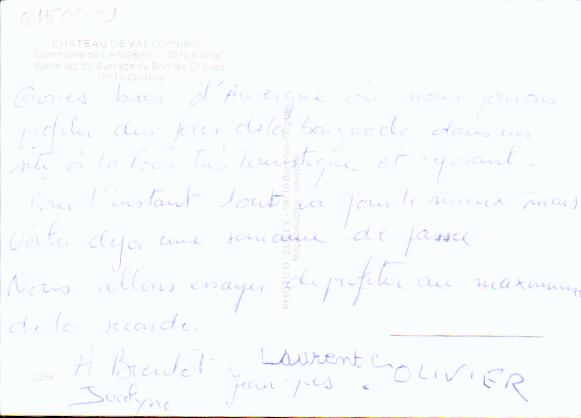 01500009
CHATEAU DE VAL (XVe siècle)
Commune de LANOBRE - 15270 Cantal
Sur le lac du Barrage de Bort les Orgues
19110 Corrèze
Grosses bises d'Auvergne où nous pouvons
profiter des joies de la baignade dans un
site à la fois très touristique et reposant.
Pour l'instant tout va pour le mieux mais
Voilà déjà une semaine de passée
Nous allons essayer de profiter au maximum
de la seconde.
À Bientôt.
Laurent
OLIVIER
Jocelyne
PHOTO 19110 Bort-les-Orgues
Reproduction interdite